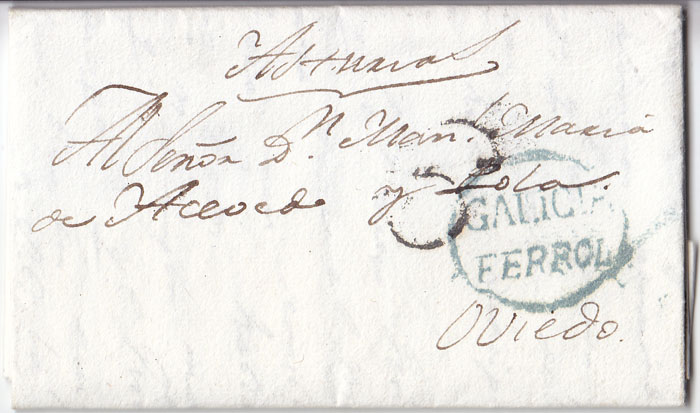 Asturias
Al Señor Dn. Man.l Maria
de Acevedo y Pola.
GALICIA
FERROL
Oviedo.